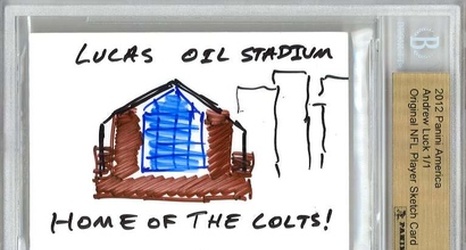 LUCAS OIL STADIUM
HOME OF THE COLTS!
2012 Panini America
Andrew Luck 1/1
Original NFL Player Sketch Card
PANINI
B